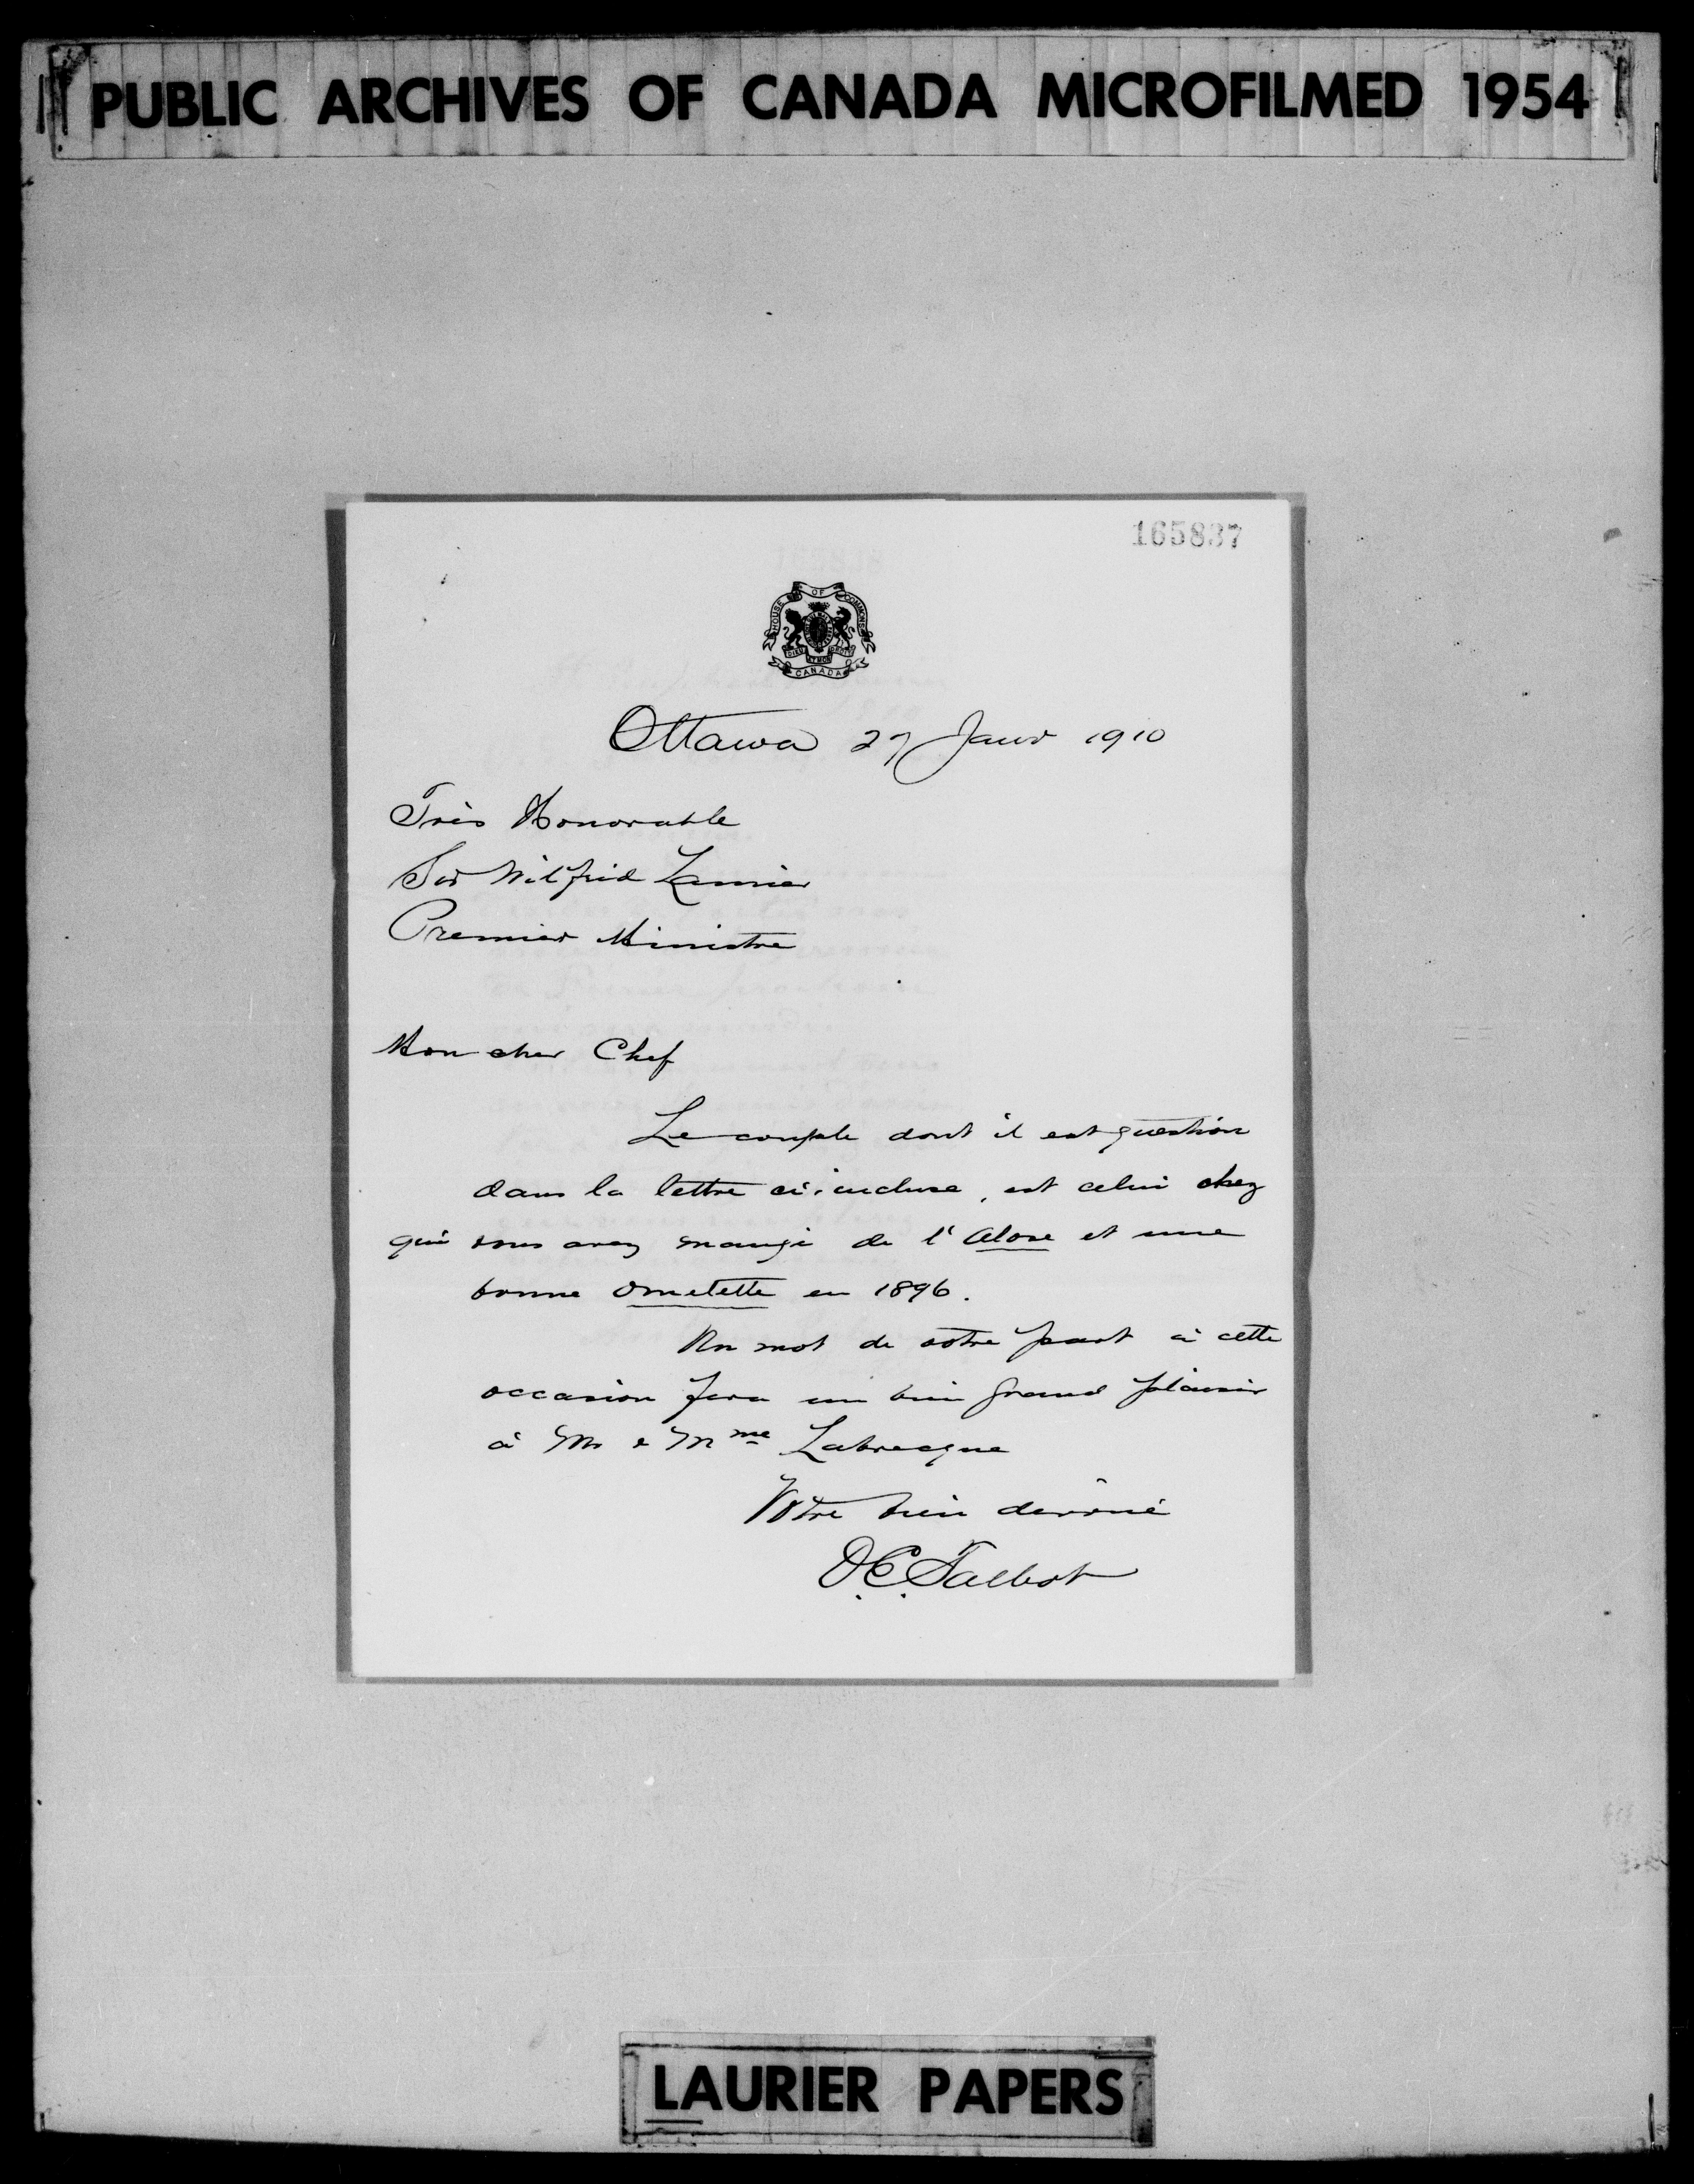 PUBLIC ARCHIVES OF CANADA MICROFILMED 1954
165837
HOUSE OF COMMONS
DIEU ET MON DROIT
CANADA
Ottawa 27 Janv 1910
Très Honorable
Sir Wilfrid Laurier
Premier Ministre
Mon cher Chef
Le couple dont il est question
dans la lettre ci-incluse, est celui chez
qui vous avez mangé de l'Alose et une
bonne Omelette en 1896.
Un mot de votre part à cette
occasion fera un bien grand plaisir
à Mr & Mme Labrecque
Votre bien dévoué
O.E. Talbot
LAURIER PAPERS